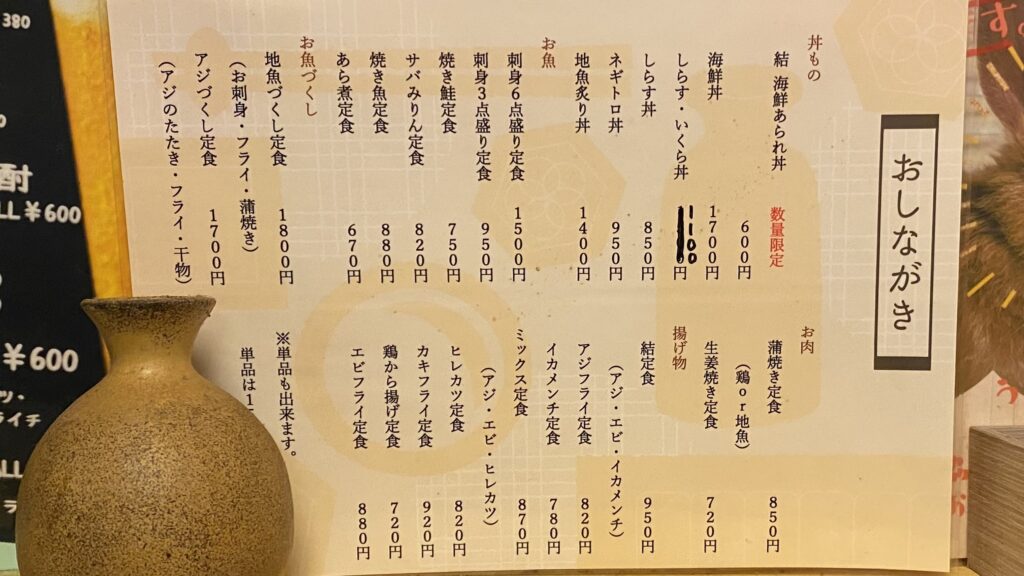 おしながき
丼もの
結 海鮮あられ丼 数量限定
600円
海鮮丼 1700円
しらす・いくら丼 1100円
しらす丼 850円
ネギトロ丼 950円
地魚炙り丼 1400円
お魚
刺身6点盛り定食 1500円
刺身3点盛り定食 950円
焼き鮭定食 750円
サバみりん定食 820円
焼き魚定食 880円
あら煮定食 670円
お魚づくし
地魚づくし定食 1800円
(お刺身・フライ・蒲焼き)
アジづくし定食 1700円
(アジのたたき・フライ・干物)
お肉
蒲焼き定食 850円
(鶏or地魚)
生姜焼き定食 720円
揚げ物
結定食 950円
(アジ・エビ・イカメンチ)
アジフライ定食 820円
イカメンチ定食 780円
ミックス定食 870円
(アジ・エビ・ヒレカツ)
ヒレカツ定食 820円
カキフライ定食 920円
鶏から揚げ定食 720円
エビフライ定食 880円
※単品も出来ます。
単品は1
380
酎
LL ¥600
¥600
ツ・
ライチ
LL